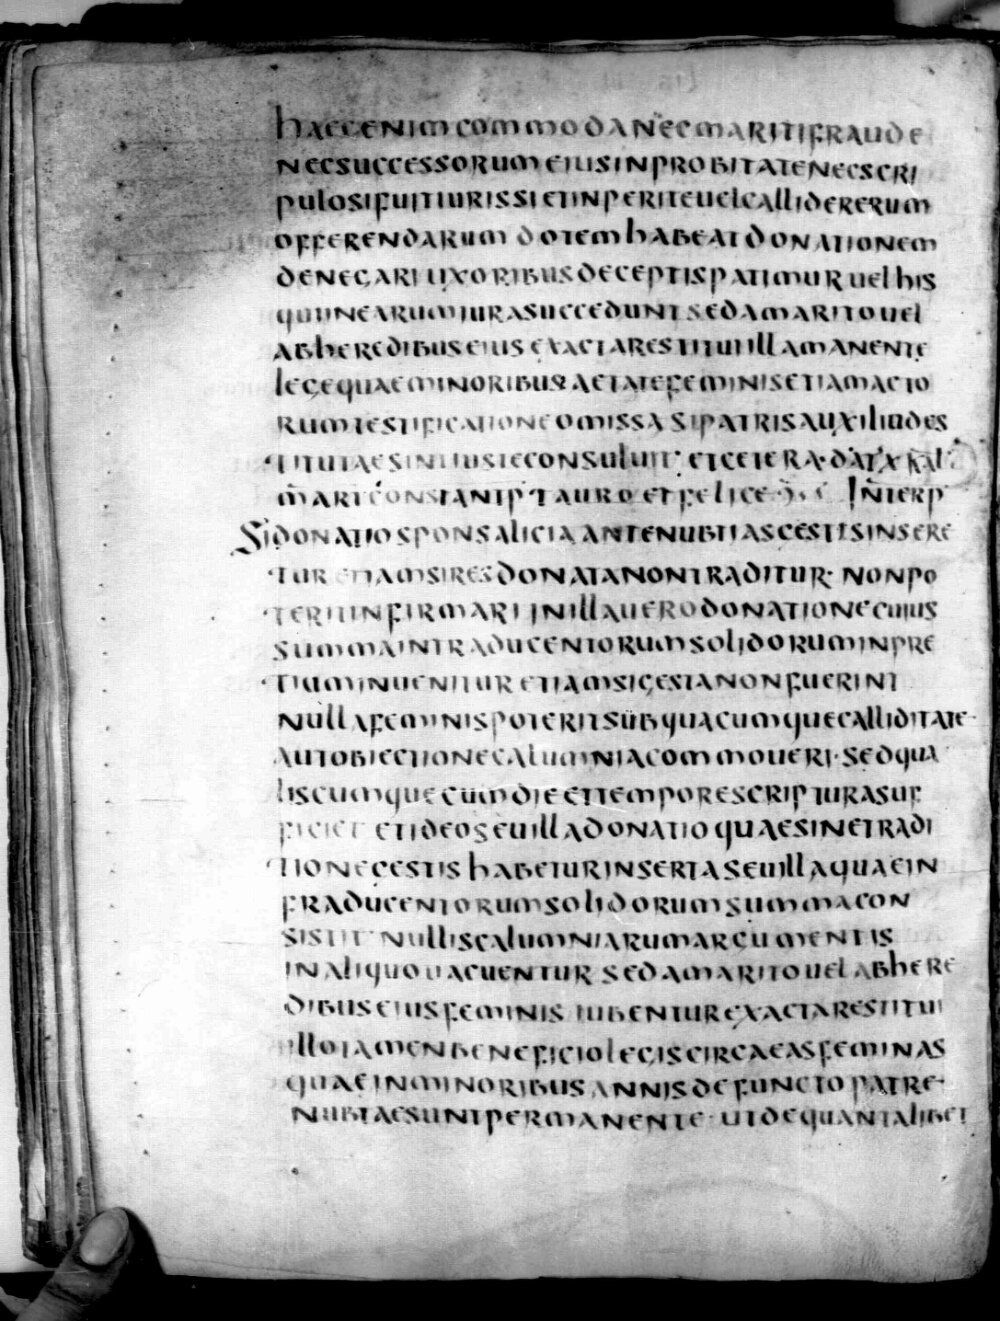 haec enim commoda nec mariti fraude
nec successorum eius inprobitate nec scri
pulosi fuit iuris si et inperite uel callide rerum
offerendarum dotem habeat donationem
denegari uxoribus deceptis patimur uel his
qui in earum iura succedunt sed a marito uel
ab heredibus eius exacta restitui illa manente
lege quae minoribus aetate feminis etiam acto
rum testificatione omissa si patris auxilii des
titutae sint iuste consuluit et cetera dat x kal
mar constantp tauro et felice interp
Si donatio sponsalicia ante nubtias gestis insere
tur etiam si res donata non traditur non po
terit infirmari in illa uero donatione cuius
summa intra ducentorum solidorum in pre
tium inuenitur etiam si gesta non fuerint
nulla feminis poterit sub quacumque calliditate
aut obiectione calumnia commoueri sed qua
liscumque cum die et tempore scriptura suf
ficiet et ideo seu illa donatio quae sine tradi
tione gestis habetur inserta seu illa quae in
fra ducentorum solidorum summa con
sistit nullis calumniarum argumentis
in aliquo uacuentur sed a marito uel ab here
dibus eius feminis iubentur exacta restitui
illo tamen beneficio legis circa eas feminas
quae in minoribus annis defuncto patre
nubtae sunt permanente ut de quantalibet